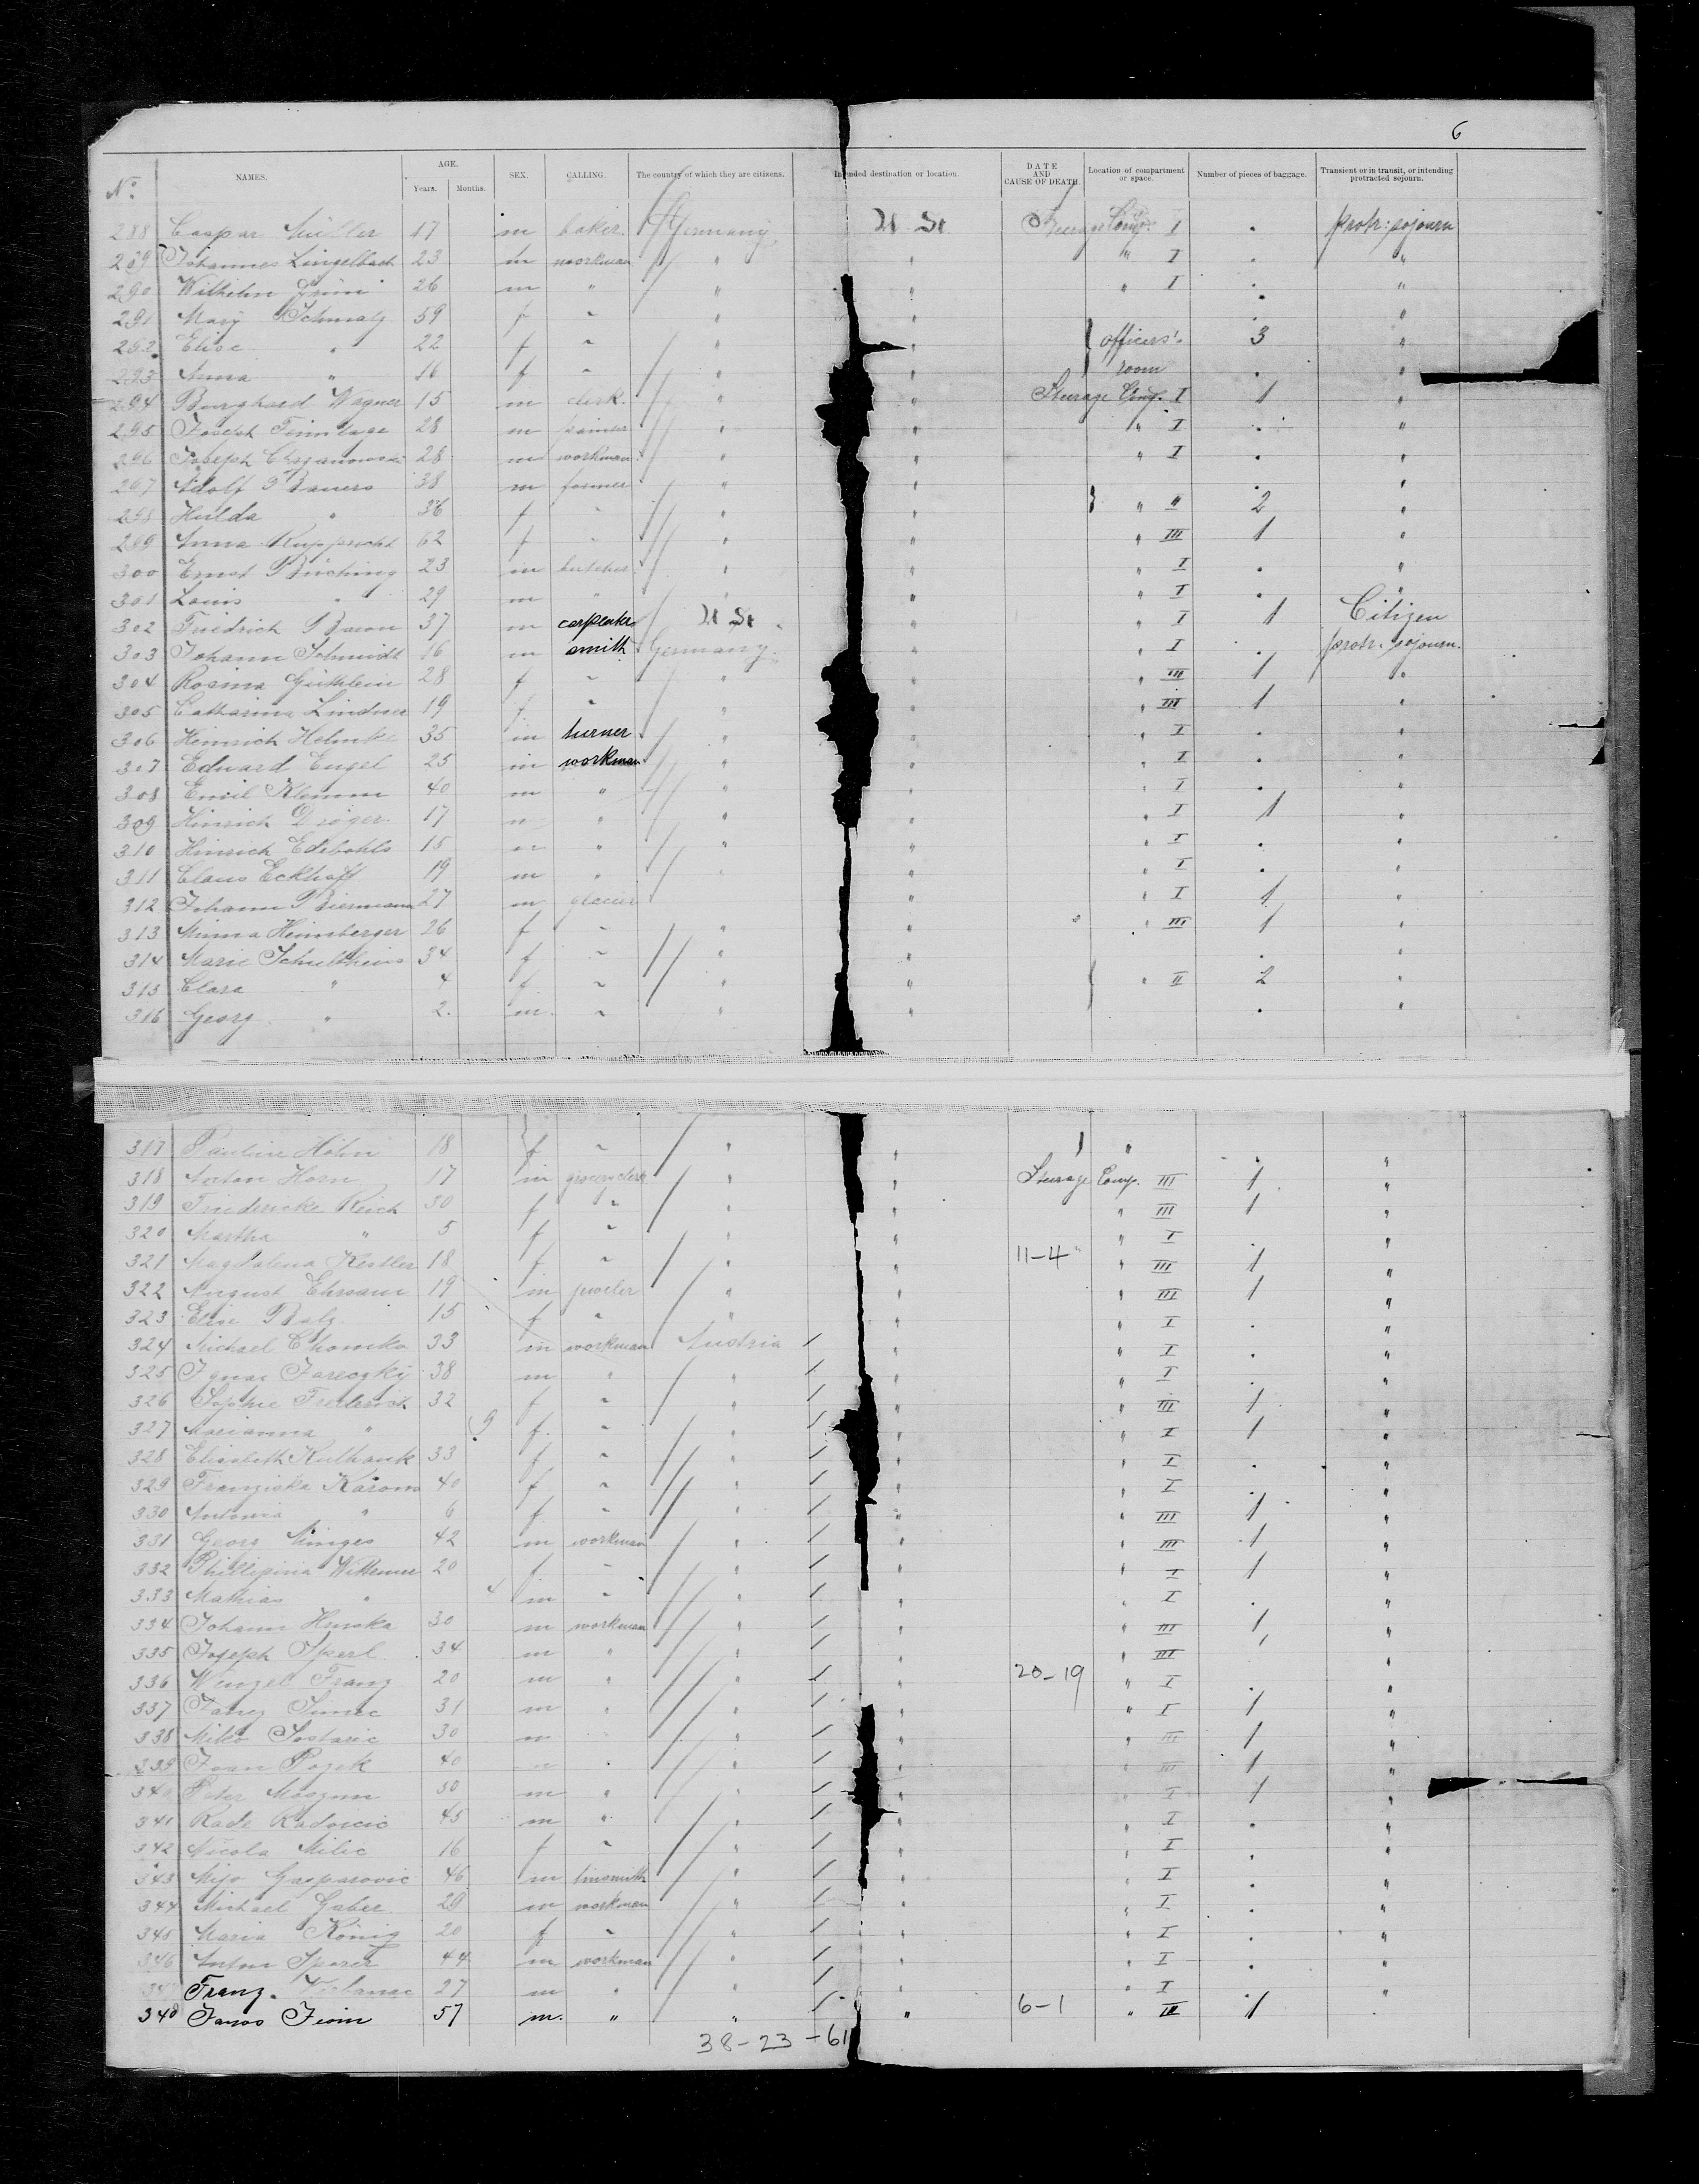 6
No. NAMES. AGE. Years. Months. SEX. CALLING. The country of which they are citizens. Intended destination or location. DATE AND CAUSE OF DEATH. Location of compartment or space. Number of pieces of baggage. Transient or in transit, or intending protracted sojourn.
288 Caspar Müller 17 m baker Germany U St Steerage Comp. I . protr: sojourn
289 Johannes Lingelbach 23 m workman " " " I . "
290 Wilhelm Grün 26 m " " " " I . "
291 Mary Schmalz 59 f ~ " " . "
292 Elise " 22 f ~ " " officers' 3 "
293 Anna " 16 f ~ " " room . "
294 Burghard Wagner 15 m clerk " " Steerage Comp. I 1 "
295 Joseph 28 m " " " I . "
296 Joseph Chrzanowski 28 m workman " " " I . "
297 Adolf Bauers 38 m farmer " " . "
298 Hulda " 36 f ~ " " " II 2 "
299 Anna Rupprecht 62 f ~ " " " III 1 "
300 Ernst Büching 23 m butcher " " " I . "
301 Louis " 29 m " " " " I . "
302 Friedrich Bacon 37 m carpenter U St. " " I 1 Citizen
303 Johann Schmidt 16 m smith Germany " " I . protr. sojourn.
304 Rosina Güthlein 28 f ~ " " " III 1 "
305 Catharina Lindner 19 f ~ " " " III 1 "
306 Heinrich Helmke 35 m turner " " " I . "
307 Eduard Engel 25 m workman " " " I . "
308 Emil Klemm 40 m " " " " I . "
309 Hinrich Dröger 17 m " " " " I 1 "
310 Hinrich Edebohls 15 m " " " " I . "
311 Claus Eckhoff 19 m " " " " I . "
312 Johann Biermann 27 m glacier " " I 1 "
313 Minna Heimberger 26 f ~ " " " III 1 "
314 Marie Schultheiss 34 f ~ " " . "
315 Clara " 4 f ~ " " " II 2 "
316 Georg " 2. m. ~ " " . "
317 Pauline Höhn 18 f ~ " " " . "
318 Anton Horn 17 m grocerclerk " " Steerage Comp. III 1 "
319 Friedericke Reich 30 f ~ " " " III 1 "
320 Martha " 5 f ~ " " " I . "
321 Magdalena Kestler 18 f ~ " " 11-4 " III 1 "
322 August Ehrsam 19 m juweler " " " III 1 "
323 Elise Balz 15 f ~ " " " I . "
324 Michael Chomko 33 m workman Austria " " I . "
325 Ignac 38 m " " " " I . "
326 Sophie 32 f ~ " " " III 1 "
327 Marianna " 9 f. ~ " " " I 1 "
328 Elisabeth Kulhanek 33 f ~ " " " I . "
329 Franziska 40 f ~ " " " I . "
330 Antonia " 6 f. ~ " " " III 1 "
331 Georg Minges 42 m workman " " " III 1 "
332 Phillipina Wittemer 20 f ~ " " " I 1 "
333 Mathias " 4 m ~ " " " I . "
334 Johann Hruska 30 m workman " " " III 1 "
335 Joseph Sperl 34 m " " " " III 1 "
336 Wenzel Franz 20 m " " " 20-19 " I . "
337 Janez Simec 31 m " " " " I 1 "
338 Miko Sostaric 30 m " " " III 1 "
339 Ivan Pozek 40 m " " " " III 1 "
340 Peter 50 m " " " " I 1 "
341 Rade Radoicic 45 m " " " " I . "
342 Nicola Milic 16 f ~ " " " I . "
343 Mijo Gasparovic 46 m tinsmith " " " I . "
344 Michael Gaber 29 m workman " " " I . "
345 Maria König 20 f ~ " " " I . "
346 Anton Sporer 44 m workman " " " I . "
347 Franz. 27 m " " " " I . "
348 Janos 57 m. " " " 6-1 " III 1
38-23-61